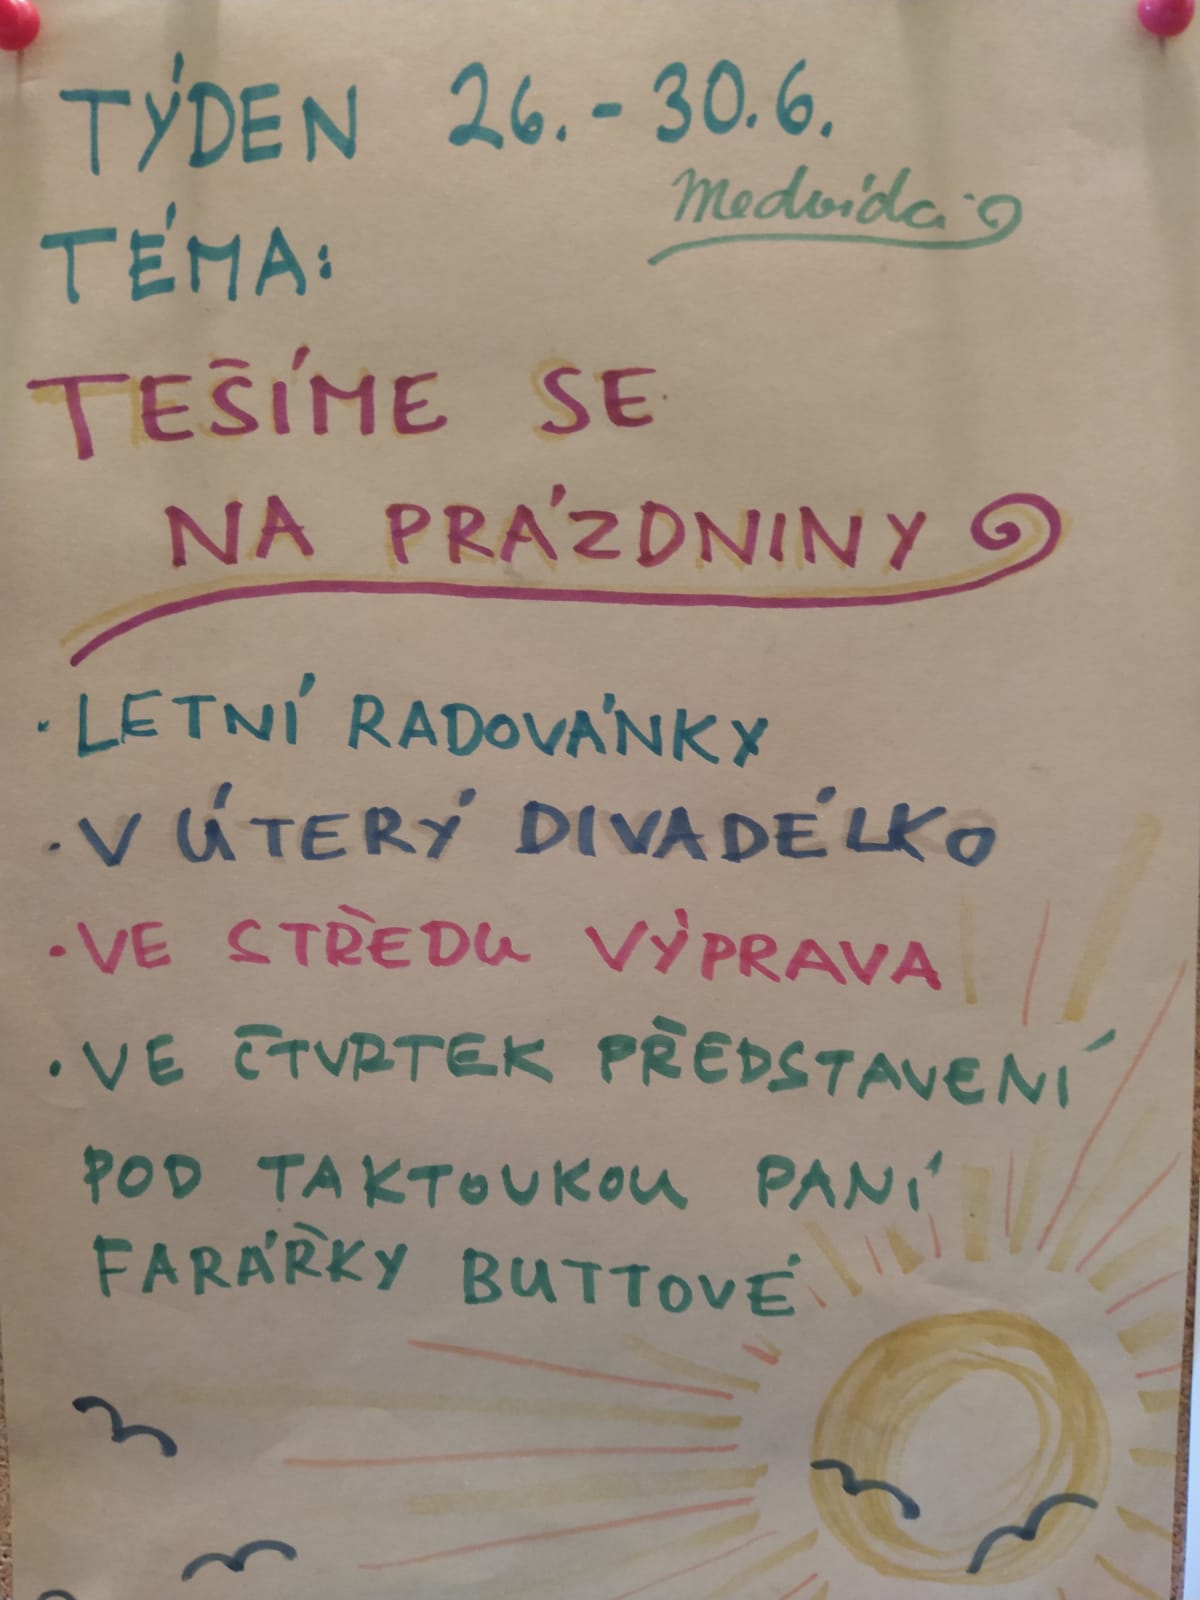 TÝDEN 26. - 30.6.
Medvíďa
TÉMA:
TEŠÍME SE
NA PRÁZDNINY
· LETNÍ RADOVÁNKY
· V ÚTERÝ DIVADÉLKO
· VE STŘEDU VÝPRAVA
· VE ČTVRTEK PŘEDSTAVENÍ
POD TAKTOUKOU PANÍ
FARÁŘKY BUTTOVÉ